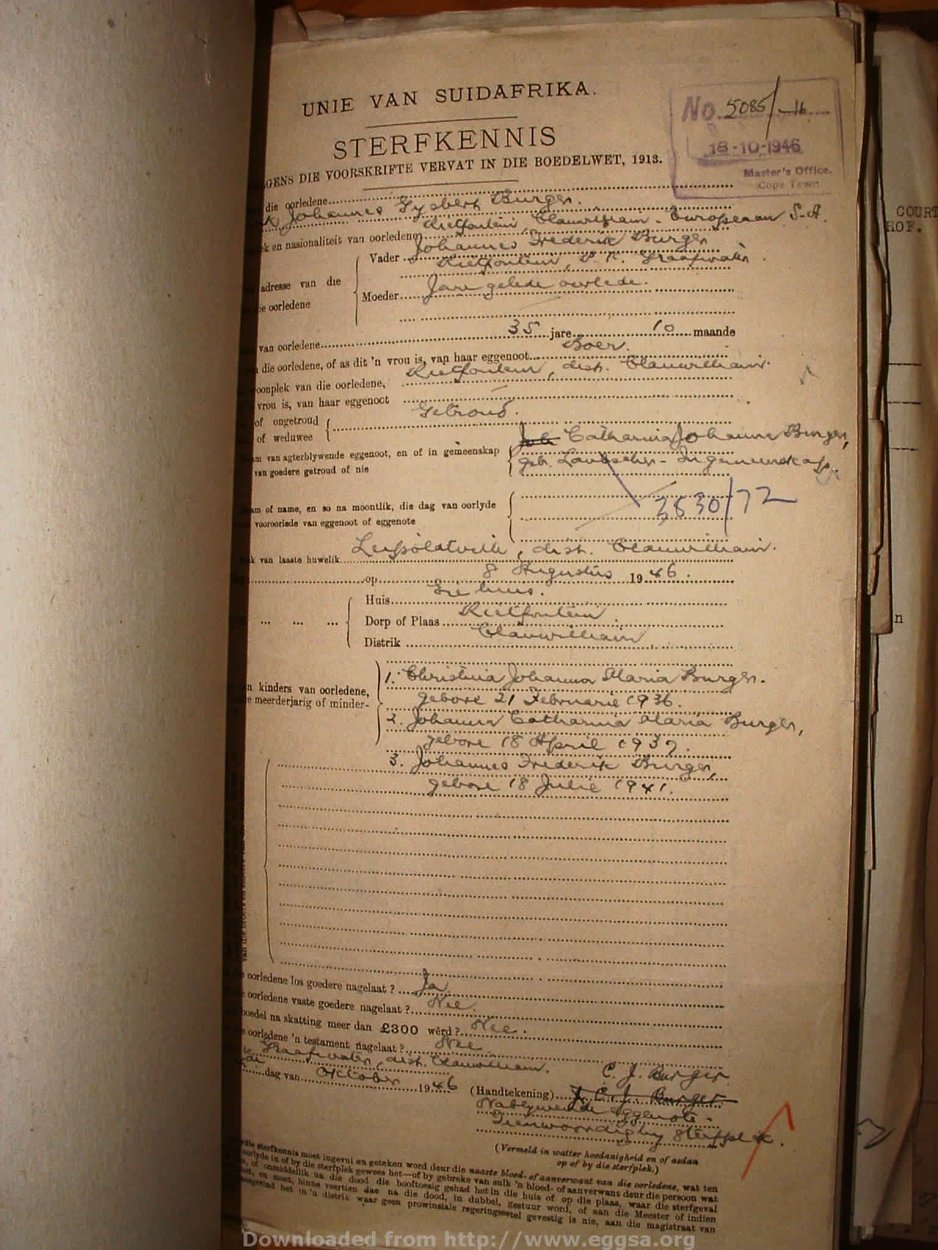 UNIE VAN SUIDAFRIKA.
No. 5085/-16
STERFKENNIS
18-10-1946
GENS DIE VOORSKRIFTE VERVAT IN DIE BOEDELWET, 1913.
Master's Office,
Cape Town
die oorledene
Johannes Gysbert Burger.
Rietfontein, Clanwilliam - Europeaan S.A.
k en nasionaliteit van oorledene
Vader Johannes Frederik Burger
Rietfontein, Graafwater.
adresse van die
oorledene
Moeder Jare gelede oorlede.
van oorledene 35 jare 10 maande
die oorledene, of as dit 'n vrou is, van haar eggenoot Boer.
oonplek van die oorledene, Rietfontein, dist. Clanwilliam.
vrou is, van haar eggenoot
of ongetroud Getroud.
of weduwee
am van agterblywende eggenoot, en of in gemeenskap Catharina Johanna Burger,
van goedere getroud of nie geb. Laubscher - In gemeenskap.
am of name, en so na moontlik, die dag van oorlyde
vooroorlede van eggenoot of eggenote
3830/72
k van laaste huwelik Leipoldtville, dist. Clanwilliam.
op 8 Augustus 1946.
Huis
Dorp of Plaas Rietfontein
Distrik Clanwilliam
n kinders van oorledene,
meerderjarig of minder-
1. Christina Johanna Maria Burger.
gebore 21 Februarie 1936.
2. Johanna Catharina Maria Burger,
gebore 18 April 1937.
3. Johannes Frederik Burger,
gebore 18 Julie 1941.
oorledene los goedere nagelaat? Ja
oorledene vaste goedere nagelaat? Nee
boedel na skatting meer dan £300 wêrd? Nee.
oorledene 'n testament nagelaat? Nee
te Graafwater, dist. Clanwilliam.
dag van October 1946
C. J. Burger
(Handtekening) J. C. J. Burger
Nablywende eggenote.
Teenwoordig by sterfplek.
(Vermeld in watter hoedanigheid en of aedan
op of by die sterfplek.)
sterfkennis moet ingevul en geteken word deur die naaste bloed- of aanverwant van die oorledene, wat ten
in of by die sterfplek gewees het—of by gebreke van sulk 'n bloed- of aanverwant deur die persoon wat
of onmiddellik na die dood die hooftoesig gehad het in die huis of op die plaas, waar die sterfgeval
en moet, binne veertien dae na die dood, in dubbel, gestuur word, of aan die Meester of indien
het in 'n distrik waar geen provinsiale regeringsetel gevestig is nie, aan die magistraat van
COURT
HOF.
Downloaded from http://www.eggsa.org